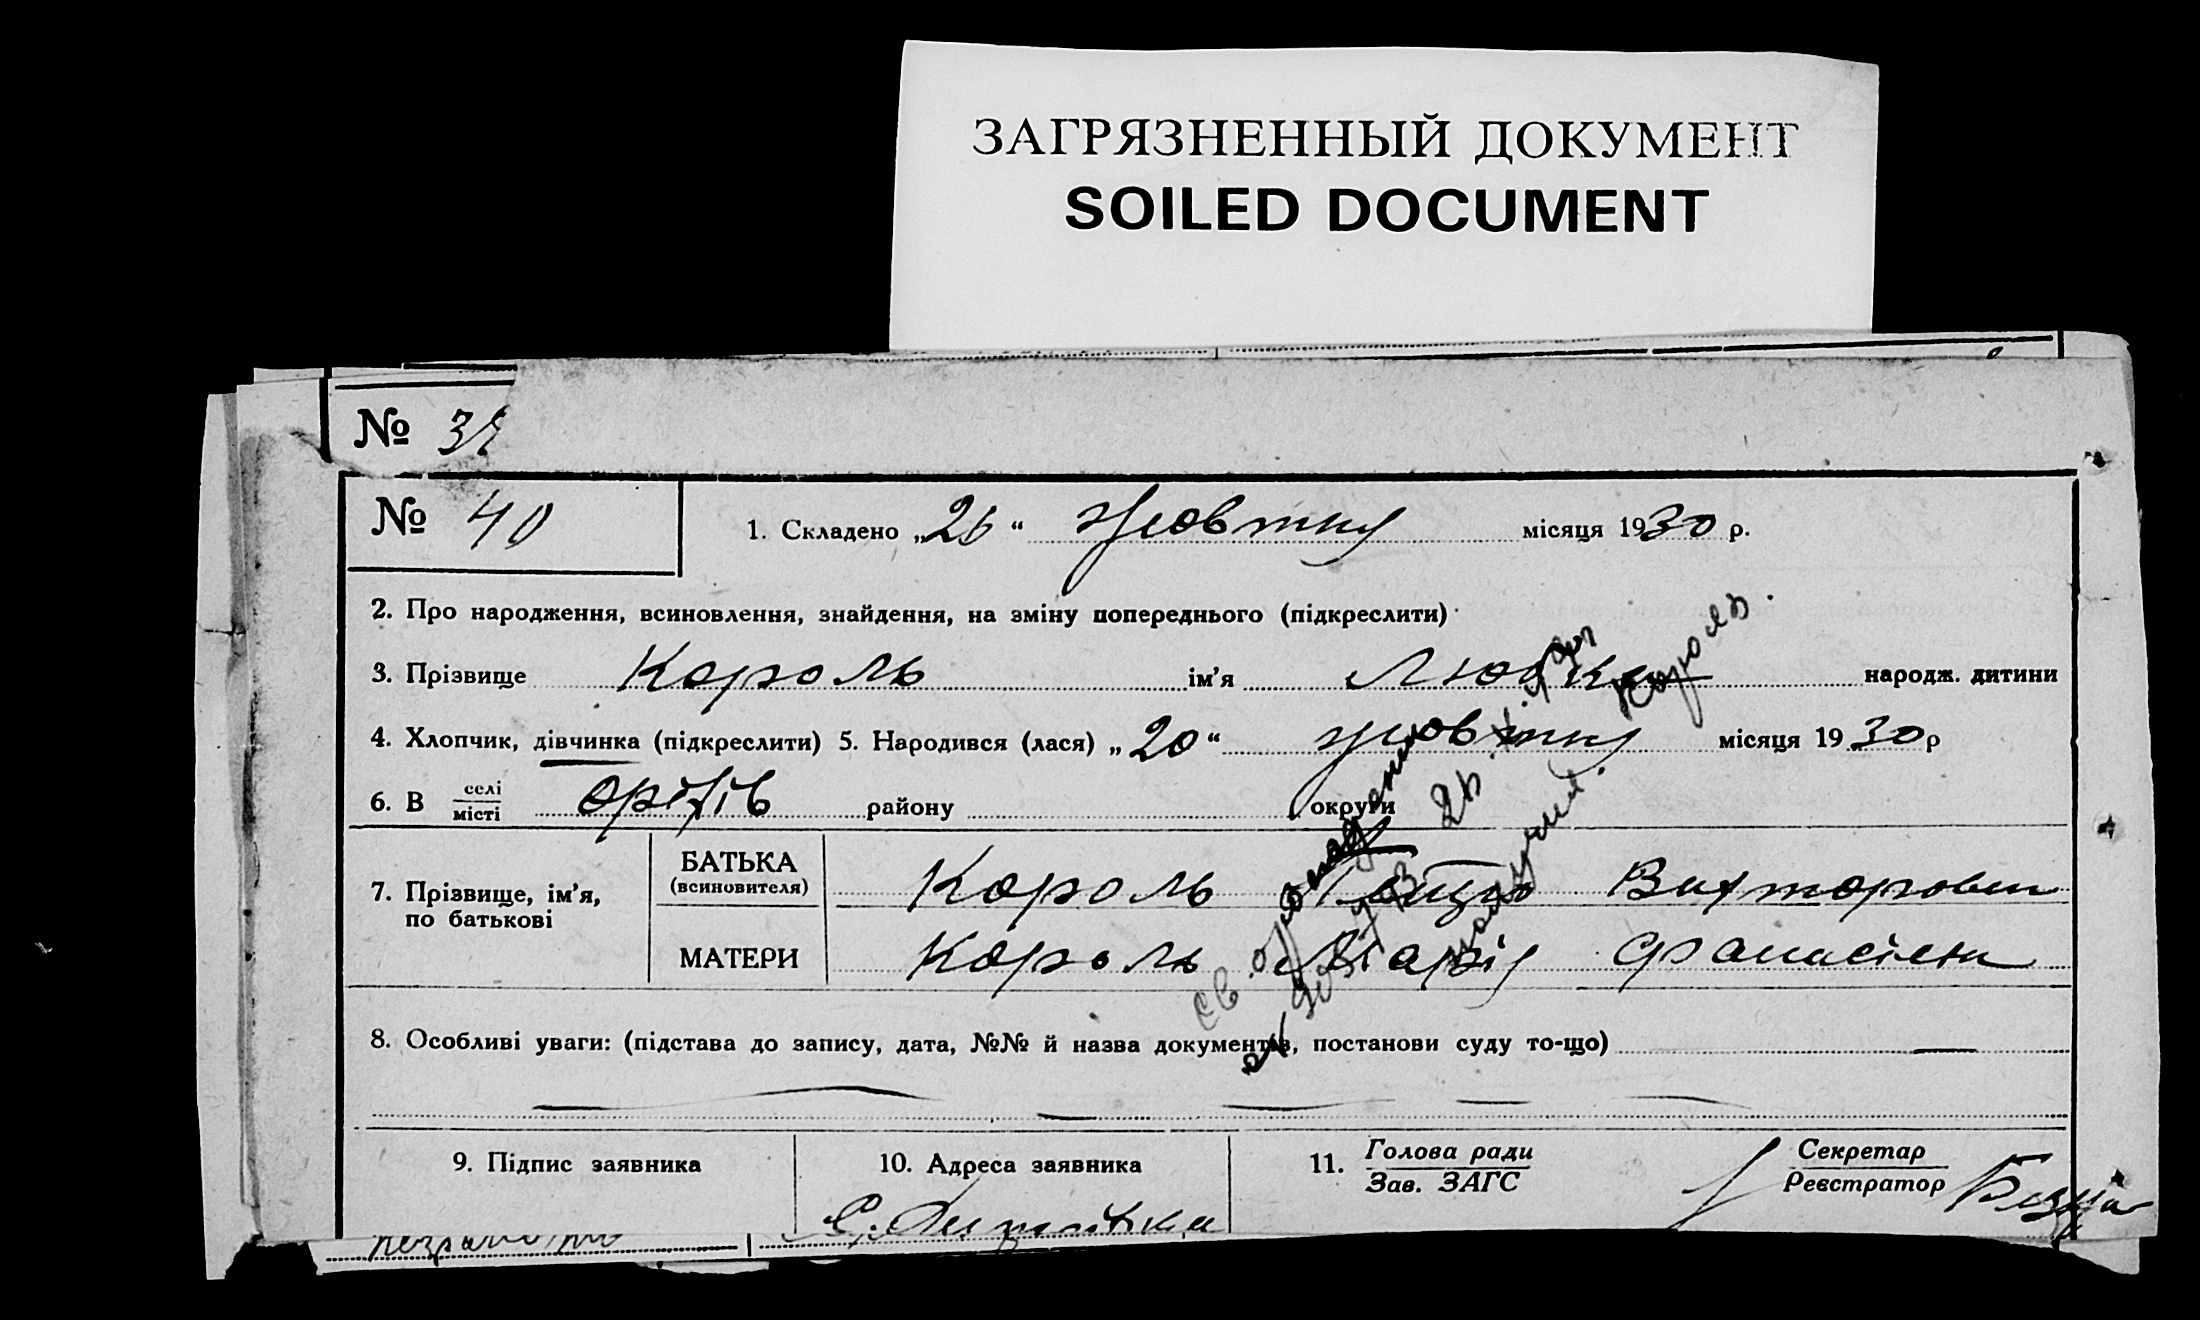 ЗАГРЯЗНЕННЫЙ ДОКУМЕНТ
SOILED DOCUMENT
№
№ 40
1. Складено „26“ жовтня місяця 1930 р.
2. Про народження, всиновлення, знайдення, на зміну попереднього (підкреслити)
3. Прізвище Король ім’я Любка народж. дитини
4. Хлопчик, дівчинка (підкреслити) 5. Народився (лася) „20“ жовтня місяця 1930 р
6. В селі/місті район у округи
7. Прізвище, ім’я, по батькові
БАТЬКА (всиновителя) Король Викторович
МАТЕРИ Король Марія
св.
26. X.
получил. Король.
8. Особливі уваги: (підстава до запису, дата, №№ й назва документів, постанови суду то-що)
9. Підпис заявника
10. Адреса заявника
11. Голова ради
Зав. ЗАГС
Секретар
Реєстратор